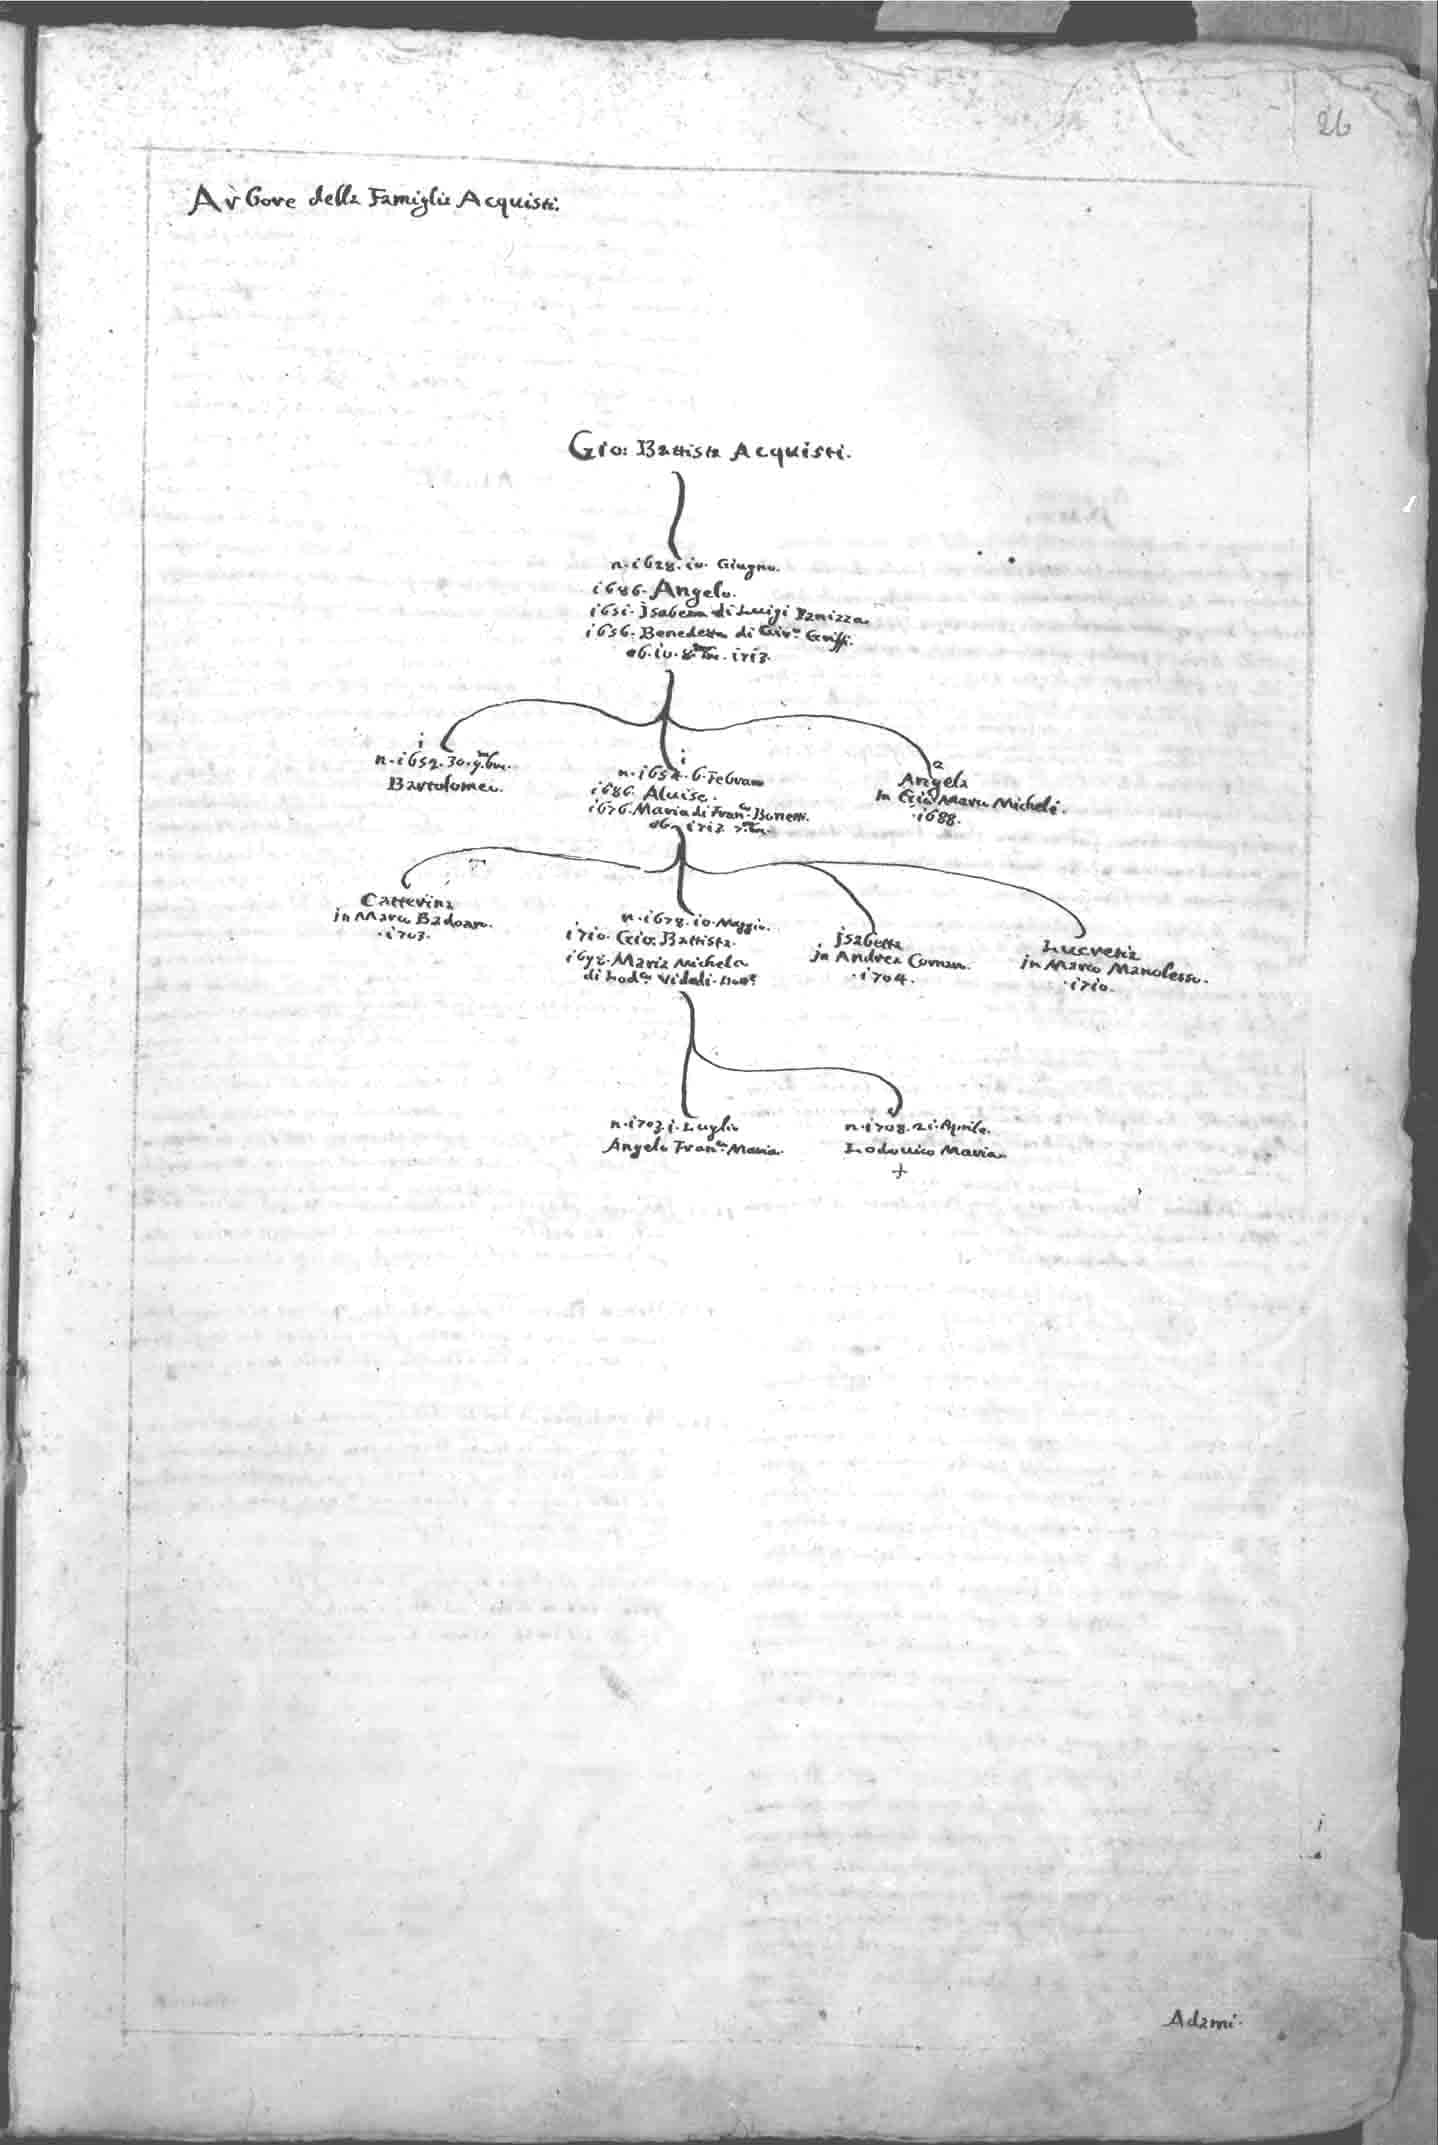 26
Arbore della Famiglia Acquisti.
Gio: Battista Acquisti.
n. i628. io. Giugno.
i686. Angelo.
i65i. jsabetta di Luigi Panizza
i656. Benedetta di Gir.º Griffi.
ob. io. 8.bre. i7i3.
i
n. i652. 30. 9.bre.
Bartolomeo.
i
n. i654. 6. Febraro
i686. Aluise.
i676. Maria di Fran.co Bonetti.
ob. i7i2 7.bre.
2
Angela
in Gio: Marco Micheli.
. i688.
Catterina
in Marco Badoaro.
. i703.
n. i678. io. Maggio.
i7io. Gio: Battista.
i698. Maria Michela
di Lod.co Vidali
jsabetta
in Andrea Cornaro.
. i704.
Lucretia
in Marco Manolesso.
. i7io.
n. i703. i. Luglio
Angelo Fran.co Maria.
n. i708. 2i. Aprile.
Lodouico Maria.
+
Adami.